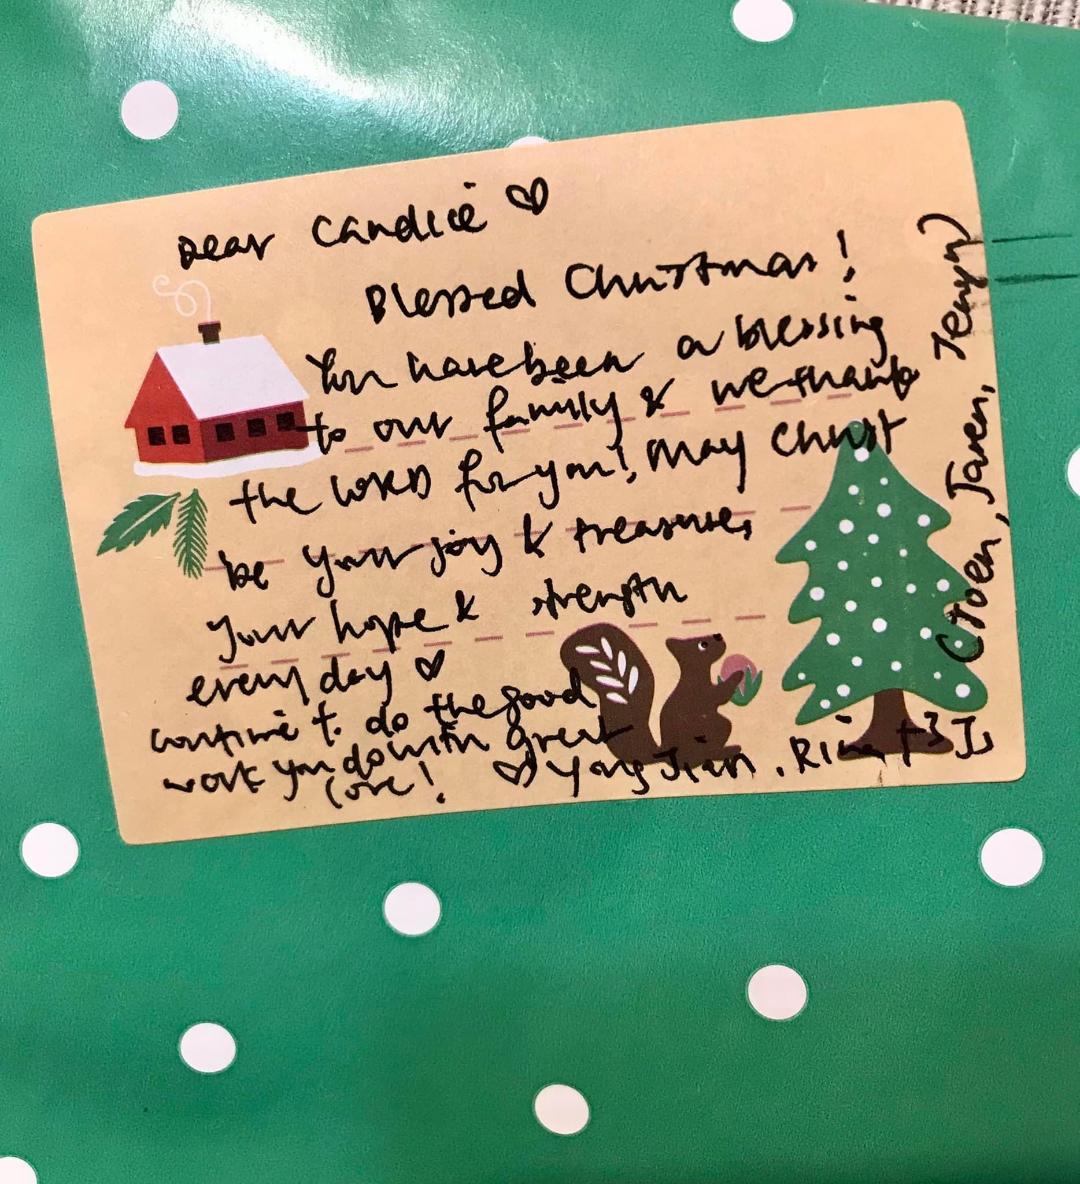 Dear Candice ♡
Blessed Christmas!
You have been a blessing
to our family & we thank
the LORD for you! May Christ
be your joy & treasure,
your hope & strength
every day ♡
continue to do the good
work you do with great
love! ♡ Yong Jian, Rina + 3 Js
Jaren, Jenyn)